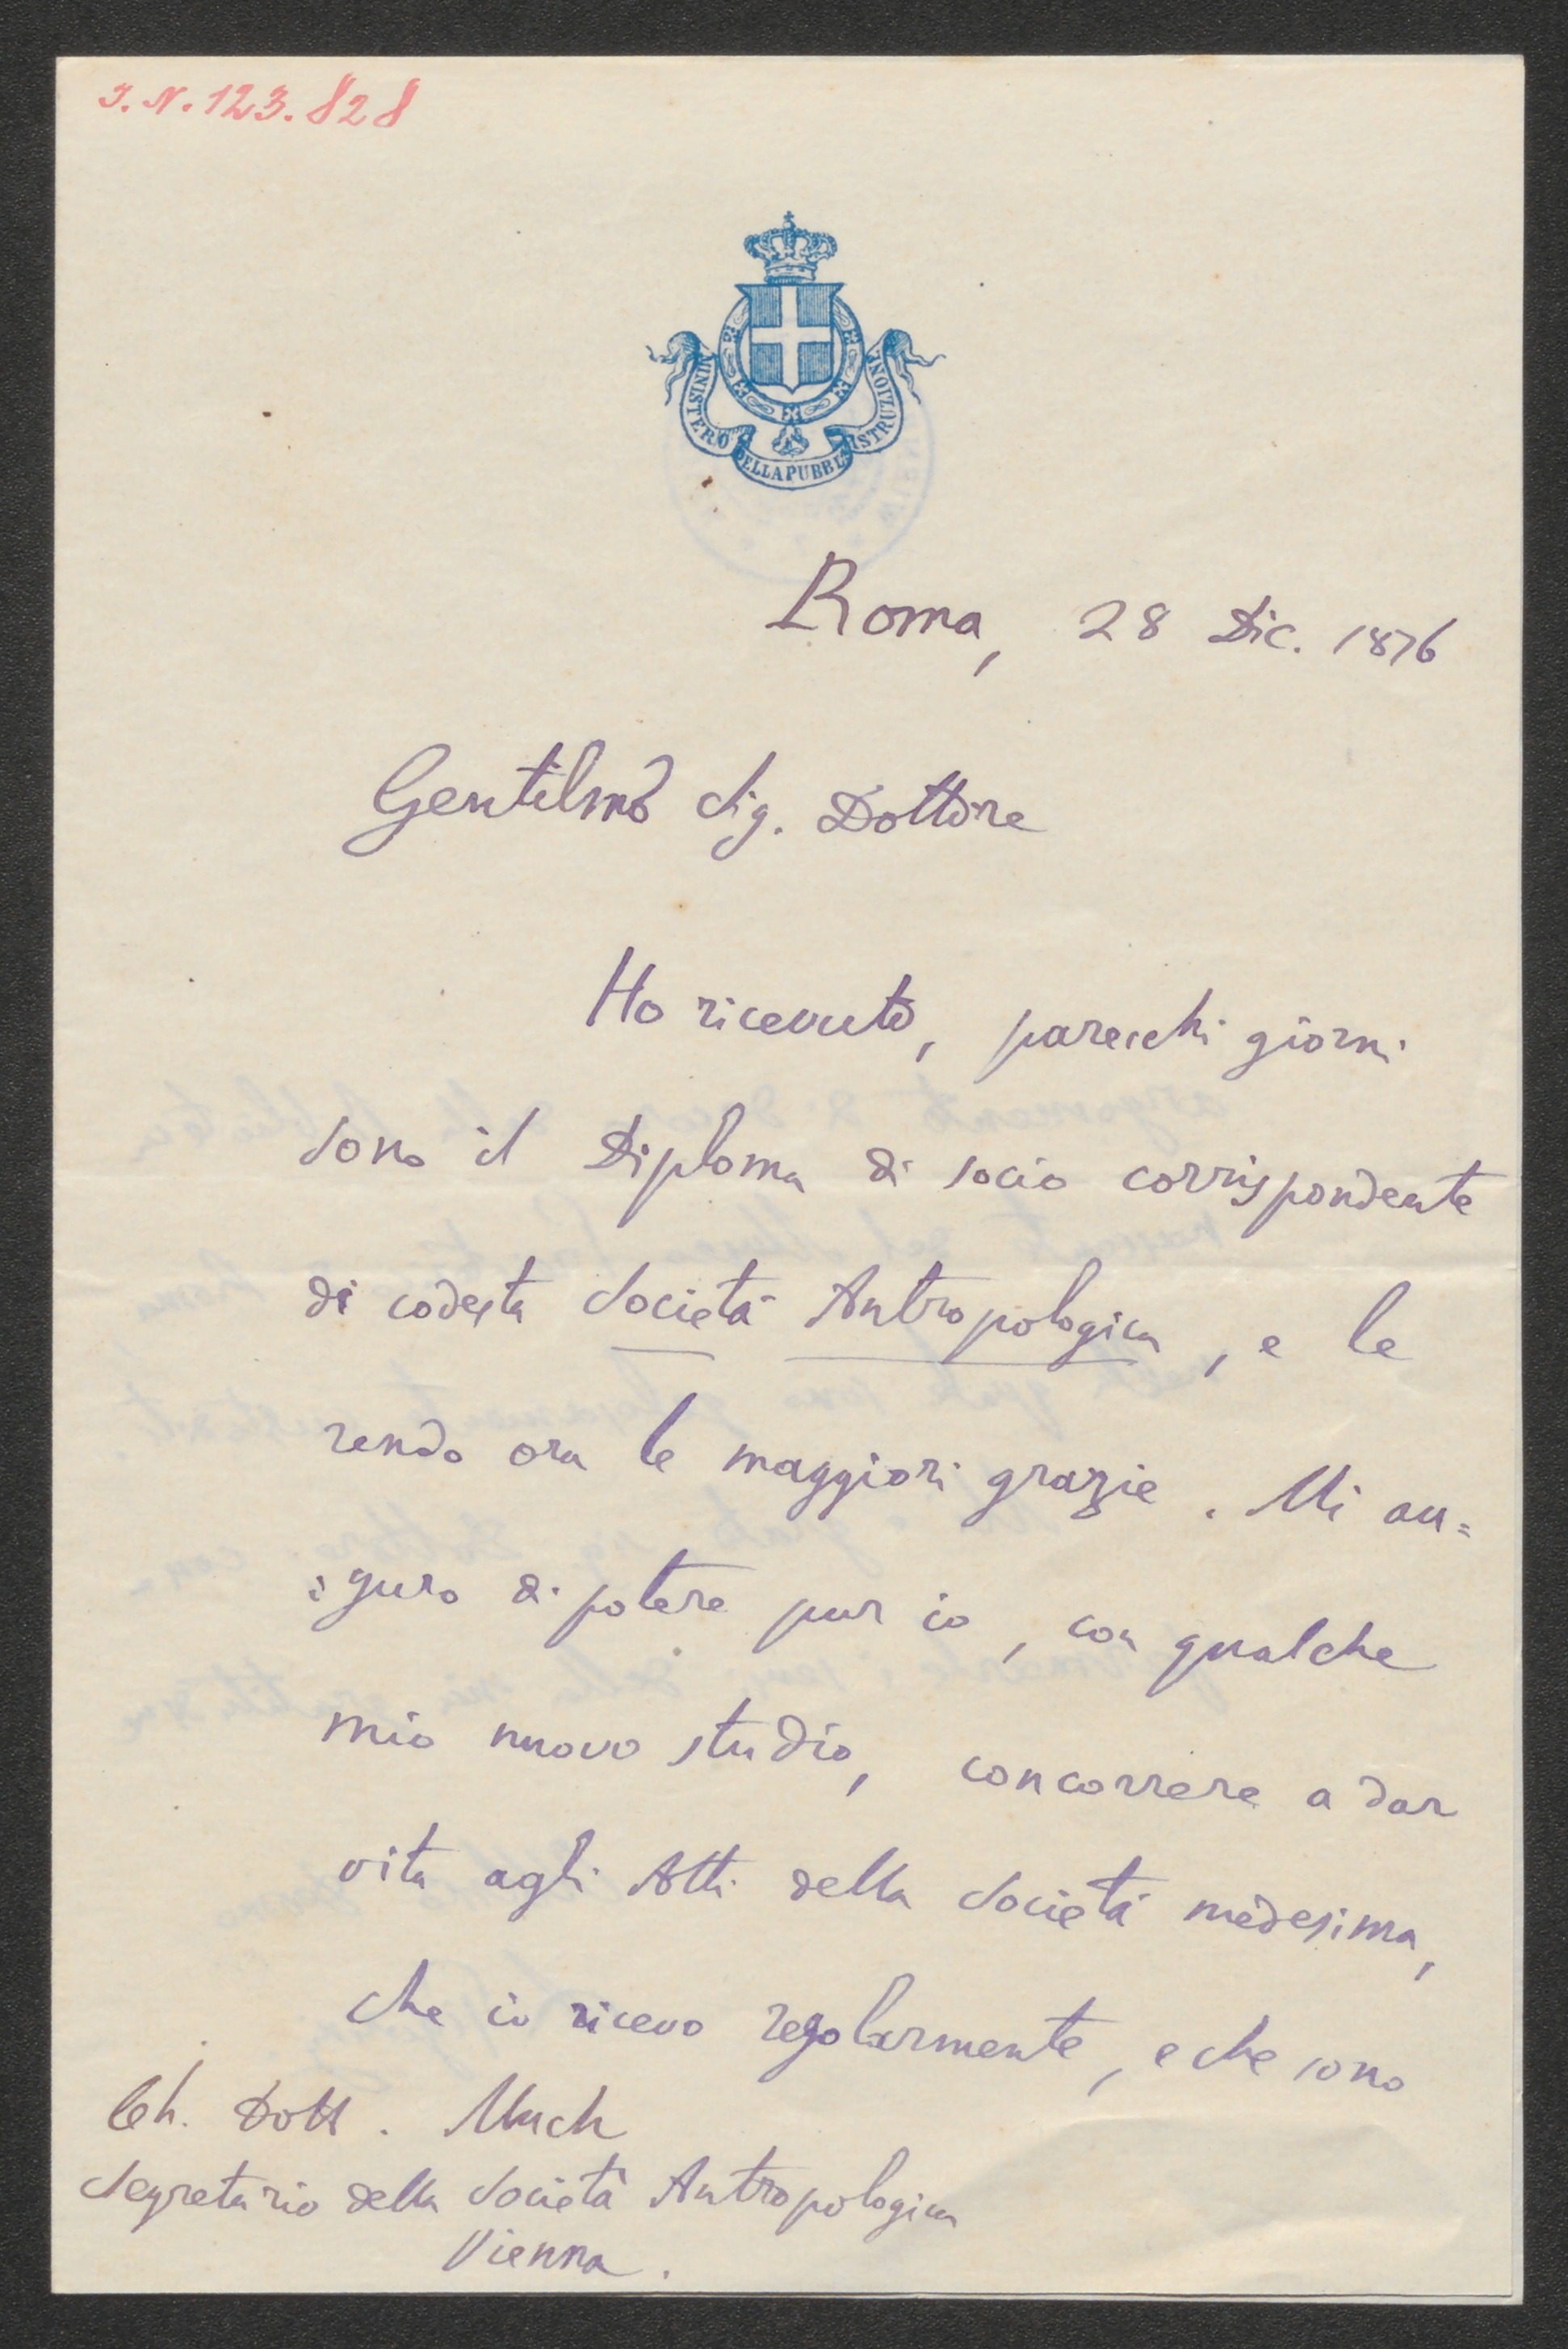 I. N. 123.828
MINISTERO DELLA PUBBL ISTRUZIONE
Roma, 28 Dic. 1876
Gentilmo Sig. Dottore
Ho ricevuto, parecchi giorni
sono il Diploma di socio corrispondente
di codesta Società Antropologica, e le
rendo ora le maggiori grazie. Mi au=
=guro di potere pur io, con qualche
mio nuovo studio, concorrere a dar
vita agli Atti della Società medesima,
che io ricevo regolarmente, e che sono
Ch. Dott. Much
Segretario della Società Antropologica
Vienna.